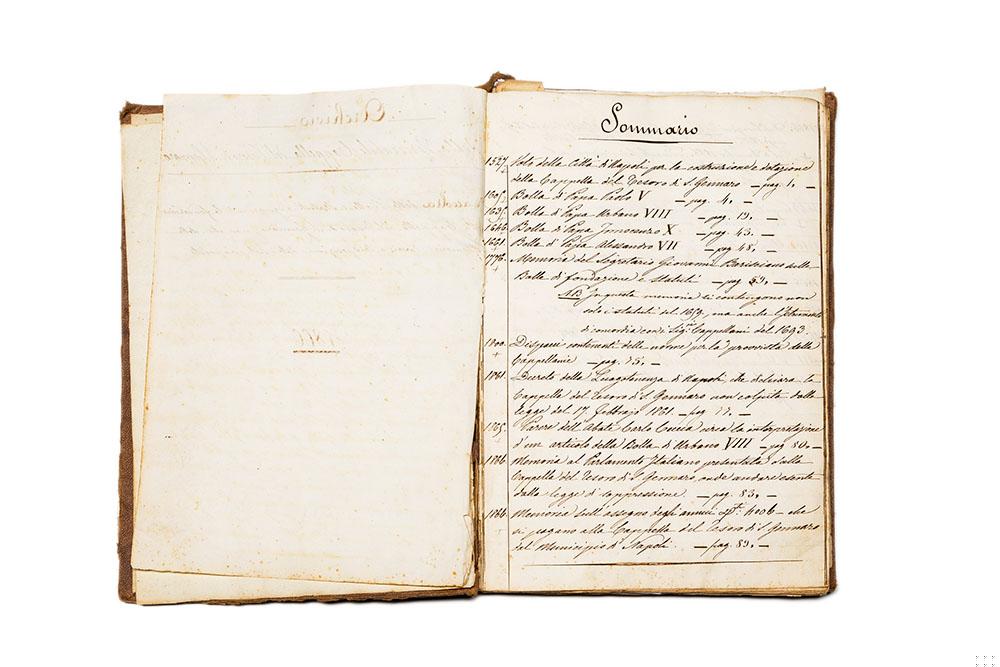 Archivio
1866
Sommario
1527. Voto della Città di Napoli per la costruzione e dotazione
della Cappella del Tesoro di S. Gennaro — pag. 1. —
1605. Bolla di Papa Paolo V — pag. 4. —
1635. Bolla di Papa Urbano VIII — pag. 19. —
1646. Bolla di Papa Innocenzo X — pag. 43. —
1661. Bolla di Papa Alessandro VII — pag. 48. —
1776. Memoria del Segretario Giovanni sulla
Bolla di fondazione e Statuti — pag. 59. —
NB. In questa memoria si contengono non
solo i statuti del ma anche l'Istrumento
di concordia con i Sigri. Cappellani del 1693.
1800. Dispacci contenenti delle norme per la provvista delle
Cappellanie — pag. 75. —
1861. Decreto della Luogotenenza di Napoli, che dichiara la
Cappella del Tesoro di S. Gennaro non colpita dalla
legge del 17 Febbrajo 1861 — pag. 77. —
Parere dell'Abate Carlo Cucca circa la interpretazione
d'un articolo della Bolla di Urbano VIII — pag. 80. —
1866 Memoria al Parlamento Italiano presentata dalla
Cappella del Tesoro di S. Gennaro, onde andare esente
dalla legge di soppressione — pag. 83. —
1866. Memoria sull'assegno degli annui che
si pagano alla Cappella del Tesoro di S. Gennaro
dal Municipio di Napoli. — pag. 89. —